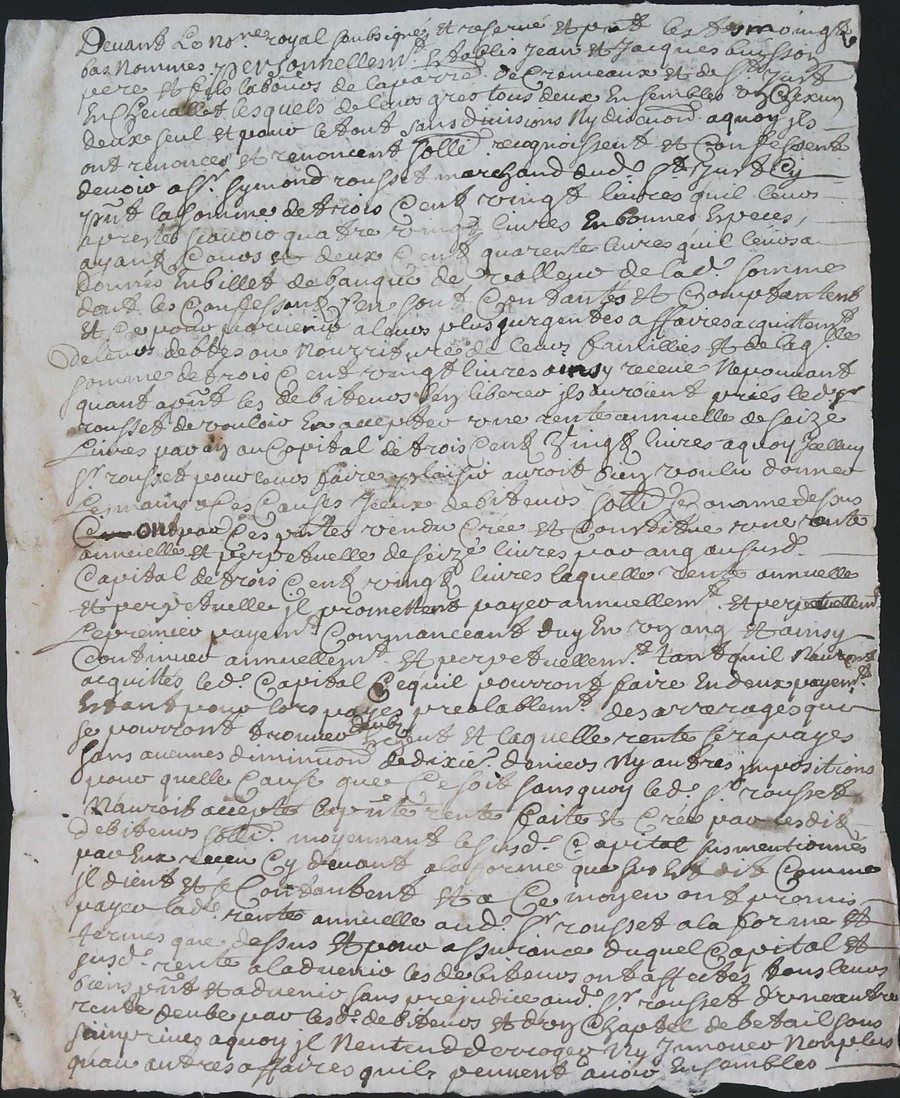 Devant le No.re royal soubsigné et reservé et p.nt les tesmoingts
bas Nommes personnellem.t Establis Jean et Jacques
pere et fils laboūrs de laparr.e de Cremeaux et de S.t Just
En Chevallet lesquels de leurs gres tous deux Ensembles
deux seul et pour le tout sans divisions Ny discution aquoy jls
ont renoncés et renoncent sollid. recognoissent et Confessent
devoir a S.r Symond rousset marchand dud. S.t Just Cy
p.nt la somme de trois Cent vingt livres quil leurs
a prestes scavoir quatre vingt livres En bonnes Especes
ayant Cours et deux Cent quarente livres quil leurs a
donnés En billot de banque de valleur de lad. somme
dont les Confessants s'en sont Contantés et Comptantent
et Ce pour parvenir a leurs plus urgentes affaires acquittem.t
de leurs debtes ou Nourriture de leurs familles et de laq.lle
somme de trois Cent vingt livres ainsy receue Ne pouvant
quant a p.nt les debiteurs s'en liberer jls auroient priés led. s.r
rousset de vouloir En accepter une rente annuelle de seize
Livres par an au Capital de trois Cent vingt livres a quoy Jcelluy
S.r rousset pour leurs faire plaisir auroit bien voulu donner
Les mains a Ces Causes Jceux debiteurs sollid. Comme dessus
ont par Ces p.ntes vendu Cree et Constitue une rente
annuelle et perpetuelle de seize livres par ang au susd.
Capital de trois Cent vingt livres laquelle rente annuelle
et perpetuelle jl promettent payer annuellem.t et perpetuellem.t
Le premier payem.t Commanceant duy En un ang et ainsy
Continuer annuellem.t et perpetuellem.t tant quil Nauront
acquittes led. Capital Ce quil pourront faire En deux payem.ts
Estant pour lors payes prealablem.t des arrerages qui
se pourront trouver deubz et laquelle rente sera payes
sans aucunes diminution de dixie. deniers Ny autres impositions
pour quelle Cause que Ce soit sans quoy led. S.r rousset
Nauroit accepté la p.nte rente faite et Cree par lesdits
debiteurs sollid. moyennant le susd. Capital sus mentionnés
par Eux receu Cy devant a la forme que sus Est dit Comme
jl dient et se Contantent et a Ce moyen ont promis
payer lad. rente annuelle aud. S.r rousset a la forme et
termes que dessus et pour assurance duquel Capital et
susd. rente a ladvenir les debiteurs ont affectés tous leurs
biens p.nt et advenir sans prejudice aud. S.r rousset d'une autre
rente deube par lesd. debiteurs et d'un Chaptel de betail sous
seimprives a quoy jl N'entend derroger Ny Jnnover Non plus
quau autres affaires quils peuvent avoir Ensembles